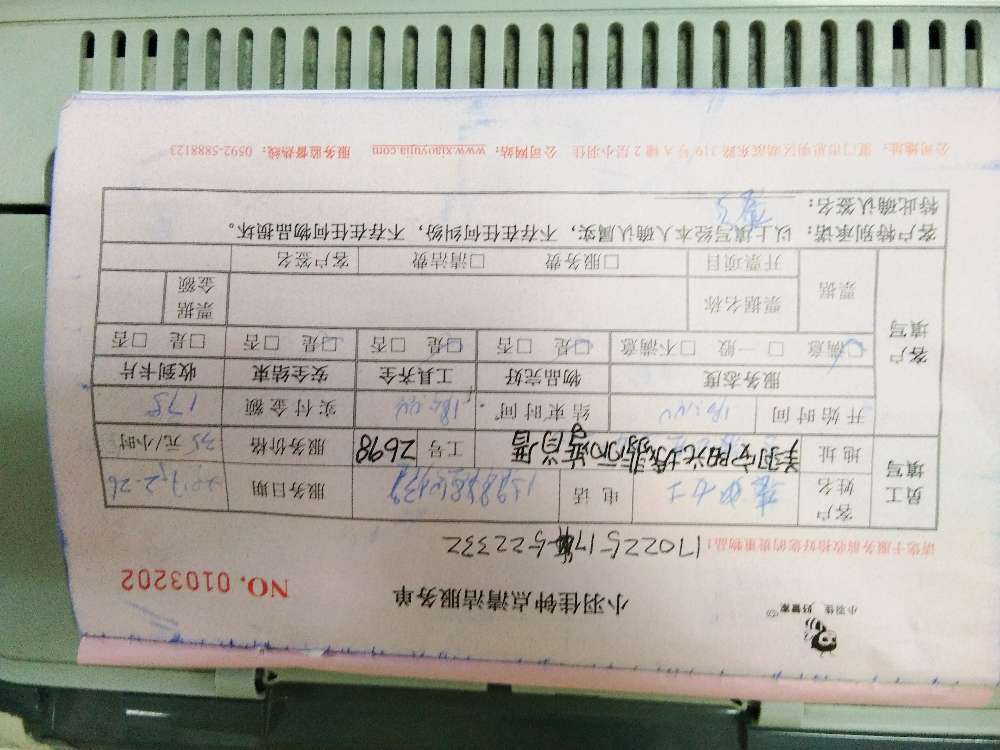 小羽佳 好管家
小羽佳钟点清洁服务单
NO. 0103202
请您于服务前收拾好您的贵重物品！
员工填写
客户姓名
女士
电话
服务日期 2017.2-26
地址
工号 2698
服务价格 35 元/小时
开始时间
结束时间
实付金额 175
客户填写
服务态度 物品完好 工具齐全 安全结束 收到卡片
□满意 □一般 □不满意 □是 □否 □是 □否 □是 □否 □是 □否
票据 票据名称 票据金额
开票项目 □服务费 □清洁费 客户签名
客户特别承诺：以上填写经本人确认属实，不存在任何纠纷，不存在任何物品损坏。
特此确认签名：
公司地址：厦门市思明区湖滨东路 319 号 A 幢 2 层小羽佳 公司网站：www.xiaoyujia.com 服务监督热线：0592-5888123